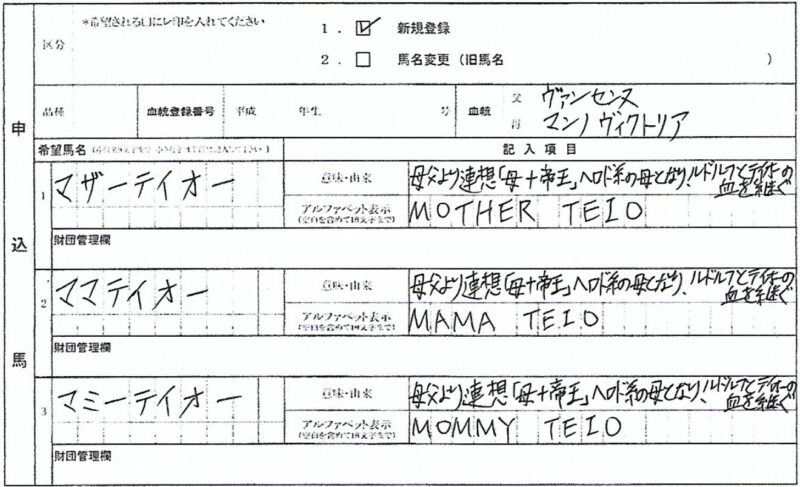 区分
*希望される口にレ印を入れてください
1. ☑ 新規登録
2. □ 馬名変更(旧馬名 )
品種 血統登録番号 平成 年生 号 血統 父 ヴァンセンヌ
母 マンノヴィクトリア
申込馬
希望馬名
記入項目
1 マザーテイオー
意味・由来 母父より連想「母+帝王」ヘロド系の母となり、ルドルフとテイオーの血を継ぐ
アルファベット表示
(空白を含めて18文字まで)
MOTHER TEIO
財団管理欄
2 ママテイオー
意味・由来 母父より連想「母+帝王」ヘロド系の母となり、ルドルフとテイオーの血を継ぐ
アルファベット表示
(空白を含めて18文字まで)
MAMA TEIO
財団管理欄
3 マミーテイオー
意味・由来 母父より連想「母+帝王」ヘロド系の母となり、ルドルフとテイオーの血を継ぐ
アルファベット表示
(空白を含めて18文字まで)
MOMMY TEIO
財団管理欄